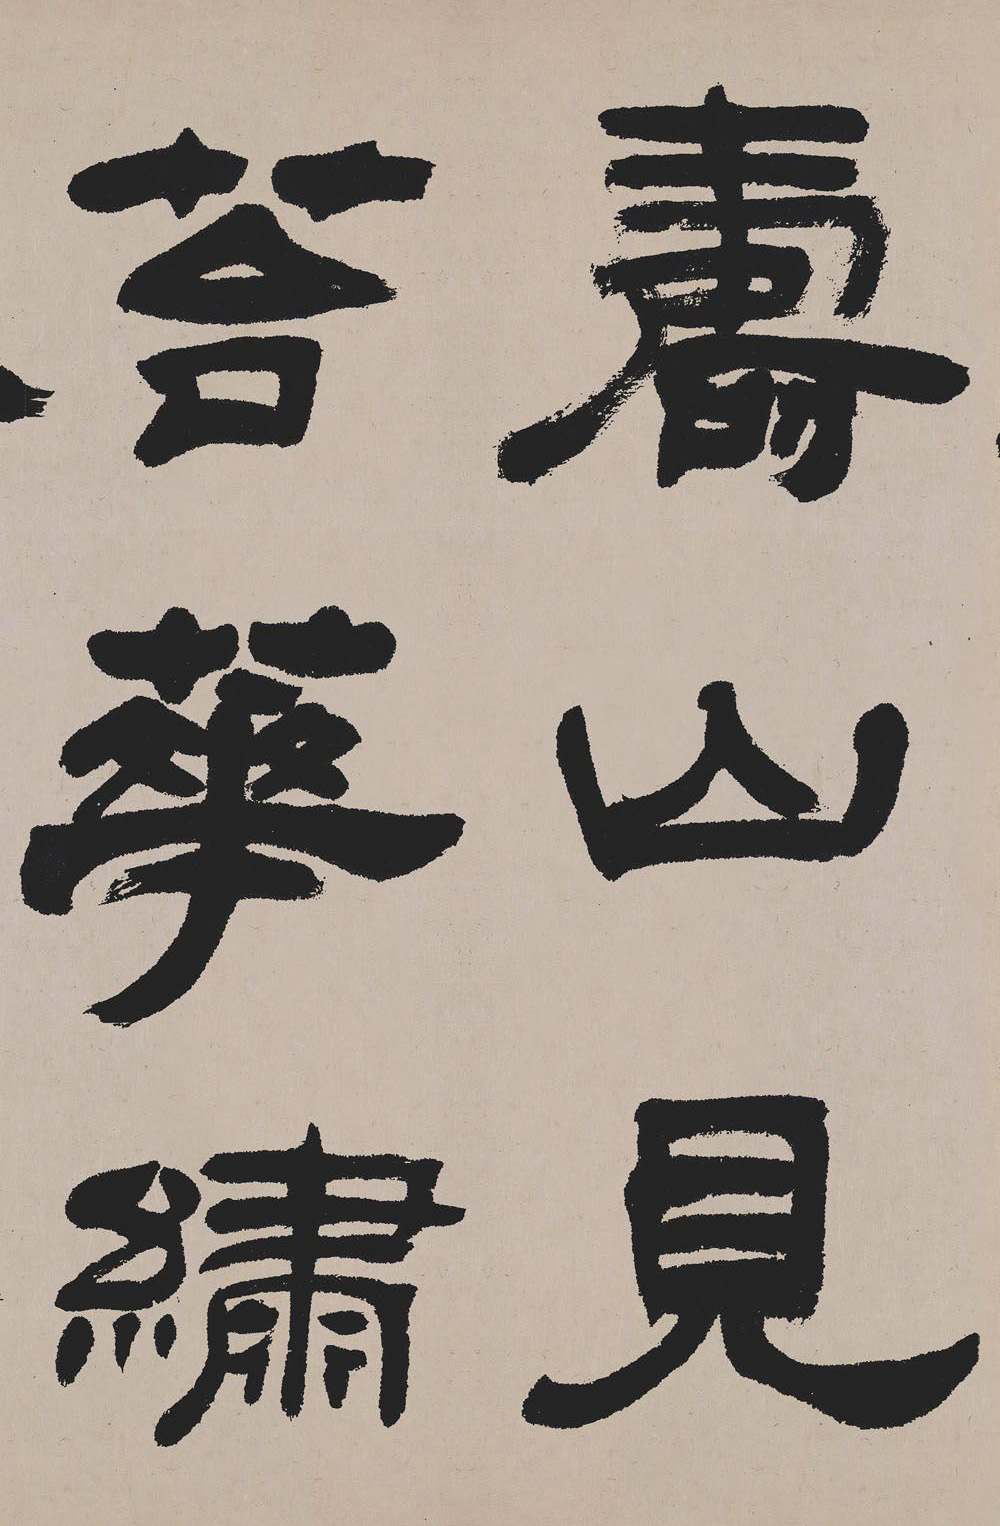 壽山見
苔華繡